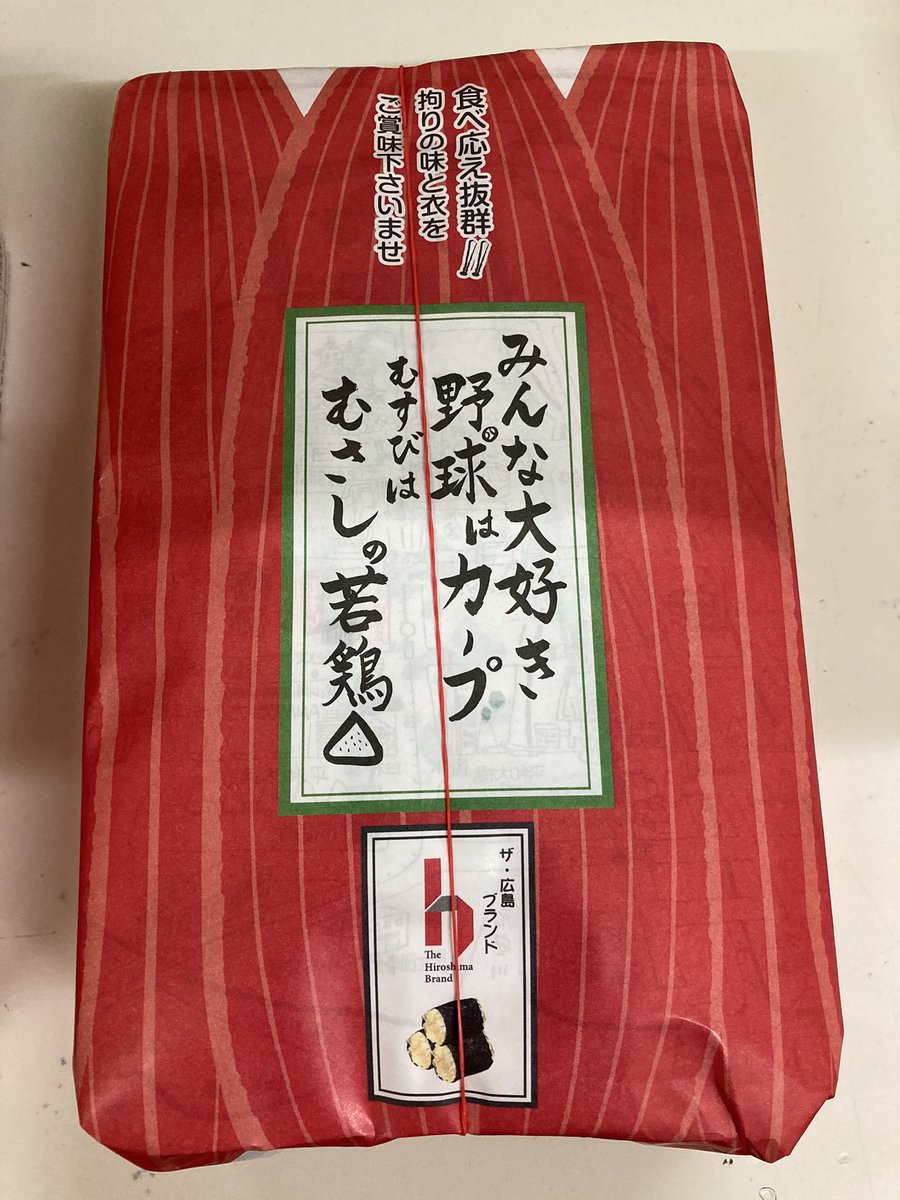 食べ応え抜群!!
拘りの味と衣を
ご賞味下さいませ
みんな大好き
野球はカープ
むすびは
むさしの若鶏
ザ・広島
ブランド
The
Hiroshima
Brand